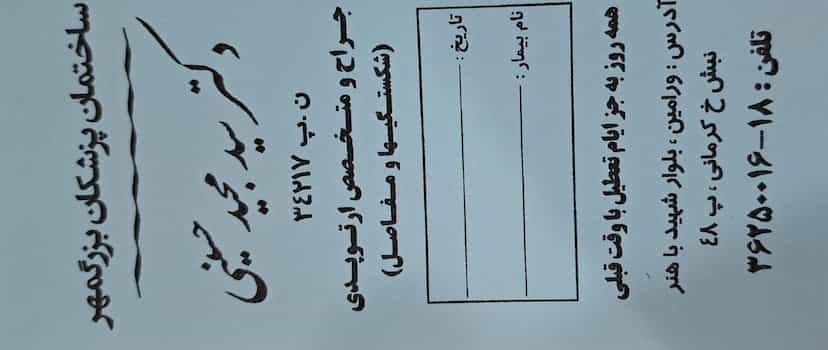 ساختمان پزشکان بزرگمهر
دکتر سید مجید حسینی
جراح و متخصص ارتوپدی
(شکستگیها و مفاصل)
ن.پ ۳۴۲۱۷
تاریخ :
نام بیمار :
همه روز به جز ایام تعطیل با وقت قبلی
آدرس : ورامین ، بلوار شهید با هنر
نبش خ کرمانی ، پ ۴۸
تلفن : ۱۸-۳۶۲۵۰۰۱۶